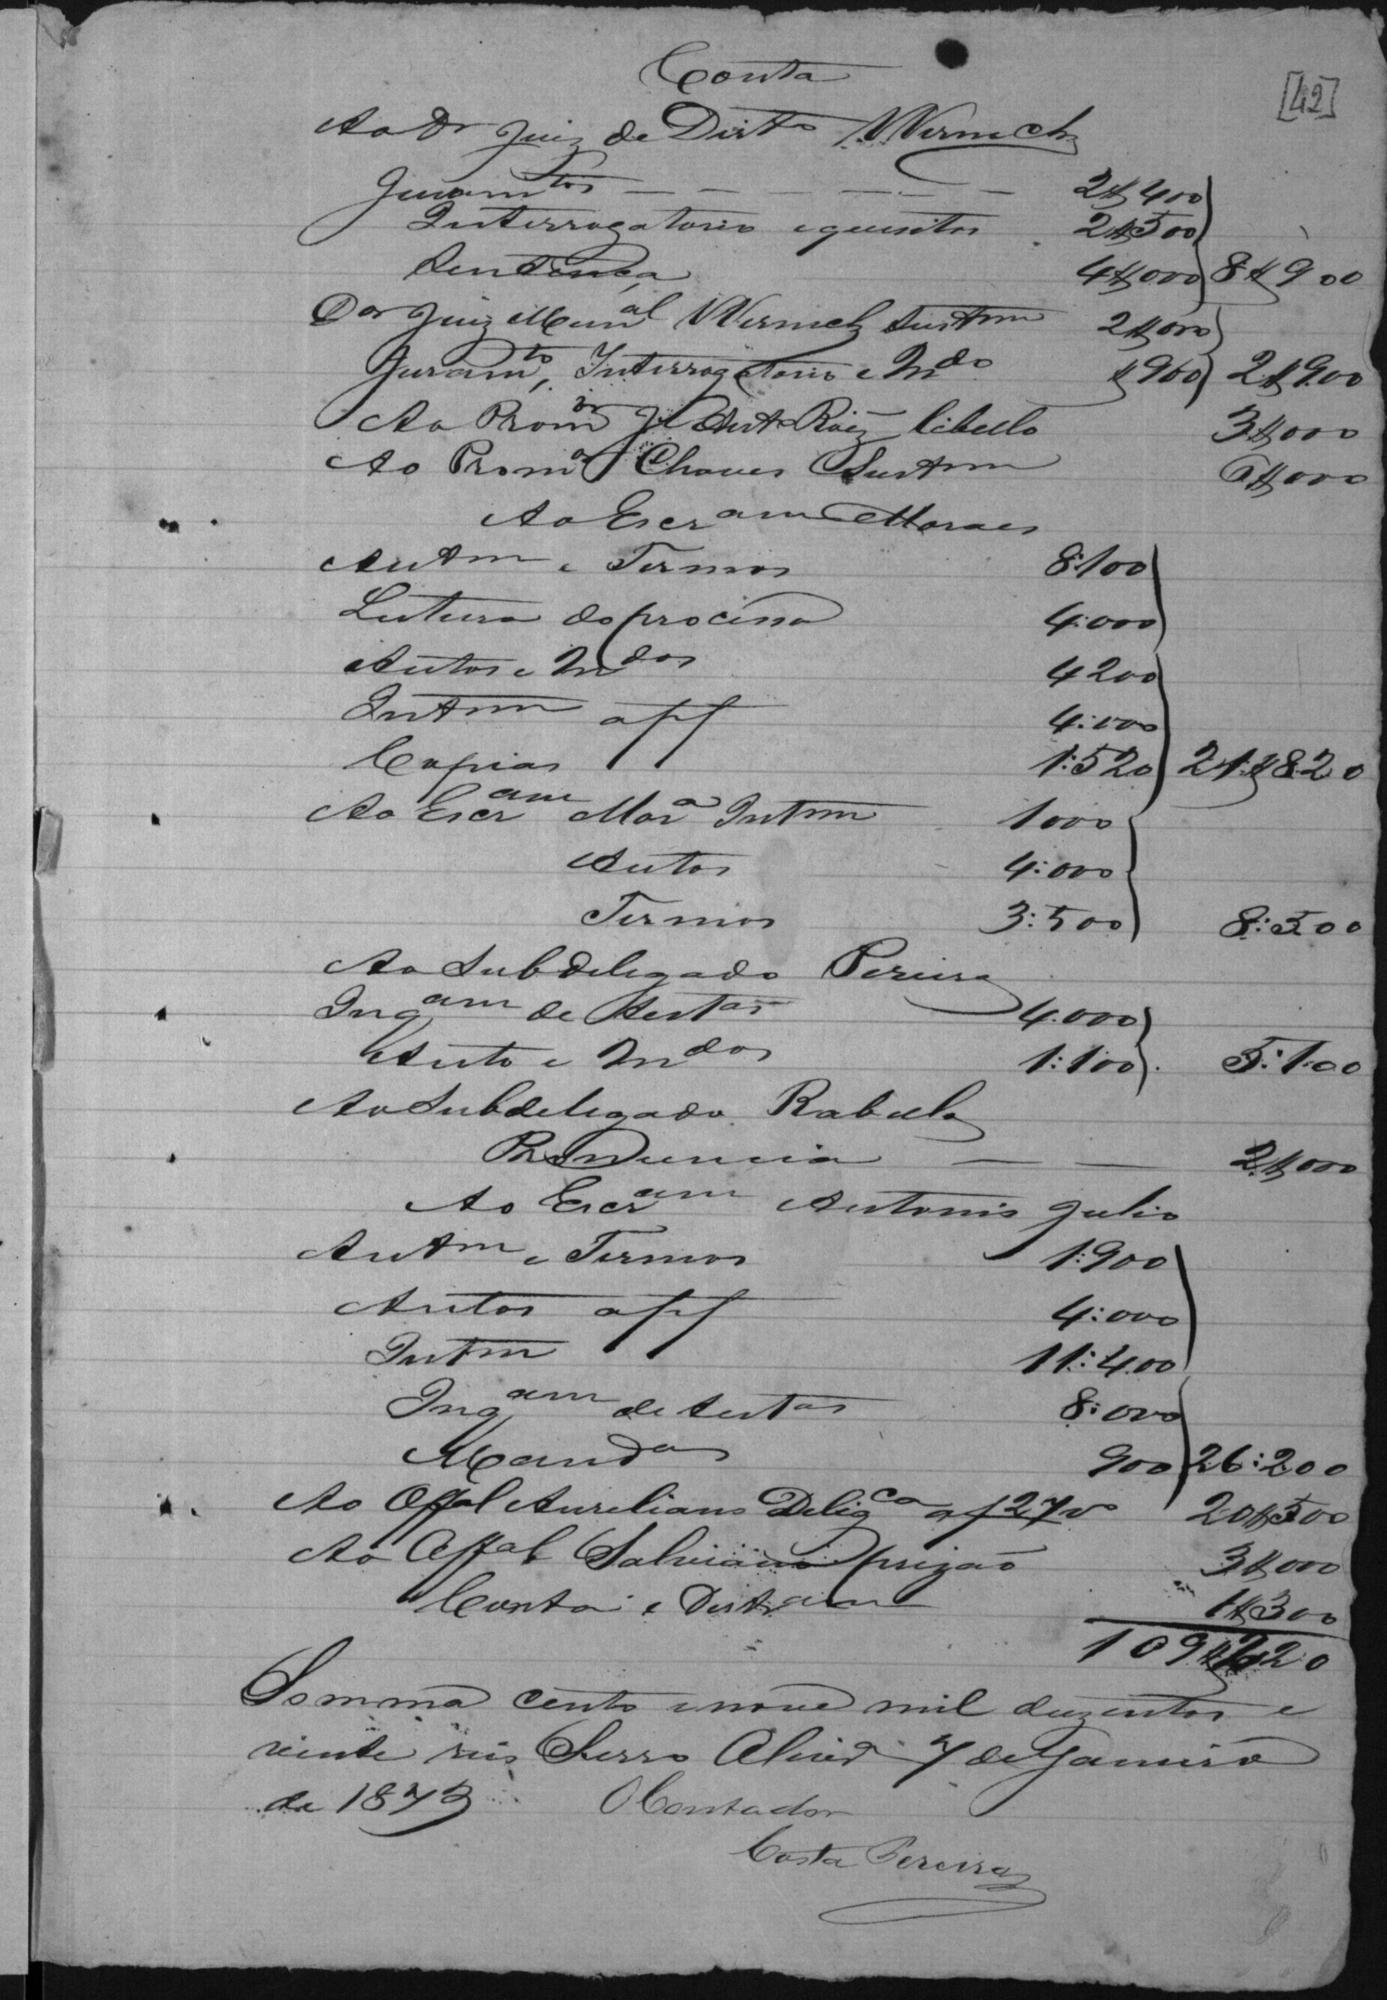 Conta
[42]
Ao Dr Juiz de Dirto Werneck
Juramtos — — — — — — 2$400
Interrogatorio e quesitos 2$500
Sentença 4$000 8$900
Dor Juiz Munal Werneck Sustmm 2$000
Juramto, Interrogatorio e Mdo $900 2$900
Ao Promor J. Ant Roiz libello 3$000
Ao Promor Chaves Sustmm 6$000
Ao Escram Moraes
Autm e Termos 8:100
Leitura do processo 4:000
Autos e Mdos 4200
Intmm apf 4:000
Copias 1:520 21$820
Ao Escram Mora Intmm 1000
Autos 4:000
Termos 3:500 8:500
Ao Subdelegado Pereira
Inqam de testas 4.000
Auto e Mdos 1:100 5:100
Ao Subdelegado Rabello
Pronuncia — — 2$000
Ao Escram Antonio Julio
Autm e Termos 1:900
Autos apf 4:000
Intmm 11:400
Inqam de testas 8:000
Mandos 900 26:200
Ao Offal Aureliano Deligca af 27 v 20$500
Ao Offal Salviano prizão 3$000
Conta e Distram 1$300
109$220
Somma cento e nove mil duzentos e
vinte reis Serro 7 de Janeiro
de 1873 O Contador
Costa Pereira